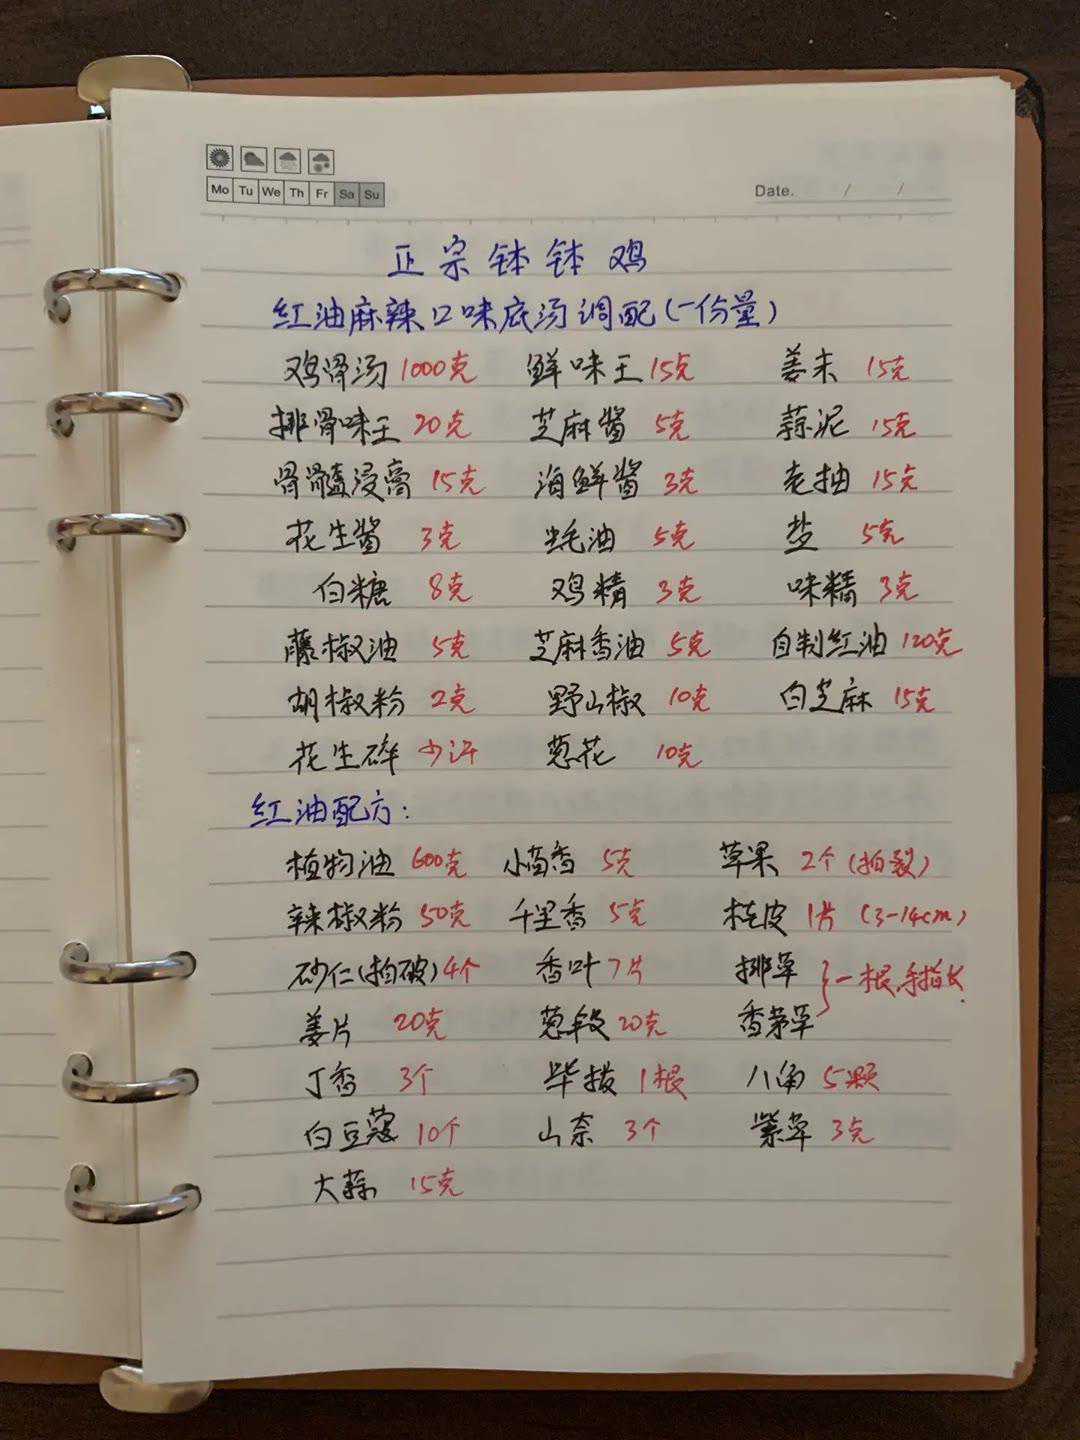 Mo Tu We Th Fr Sa Su
Date. / /
正宗钵钵鸡
红油麻辣口味底汤调配(一份量)
鸡骨汤 1000克 鲜味王 15克 姜末 15克
排骨味王 20克 芝麻酱 5克 蒜泥 15克
骨髓浸膏 15克 海鲜酱 3克 老抽 15克
花生酱 3克 蚝油 5克 盐 5克
白糖 8克 鸡精 3克 味精 3克
藤椒油 5克 芝麻香油 5克 自制红油 120克
胡椒粉 2克 野山椒 10克 白芝麻 15克
花生碎 少许 葱花 10克
红油配方:
植物油 600克 小茴香 5克 草果 2个(拍裂)
辣椒粉 50克 千里香 5克 桂皮 1片 (3-14cm)
砂仁(拍破)4个 香叶 7片 排草 }一根,手指长
姜片 20克 葱段 20克 香茅草
丁香 3个 毕拨 1根 八角 5颗
白豆蔻 10个 山奈 3个 紫草 3克
大蒜 15克